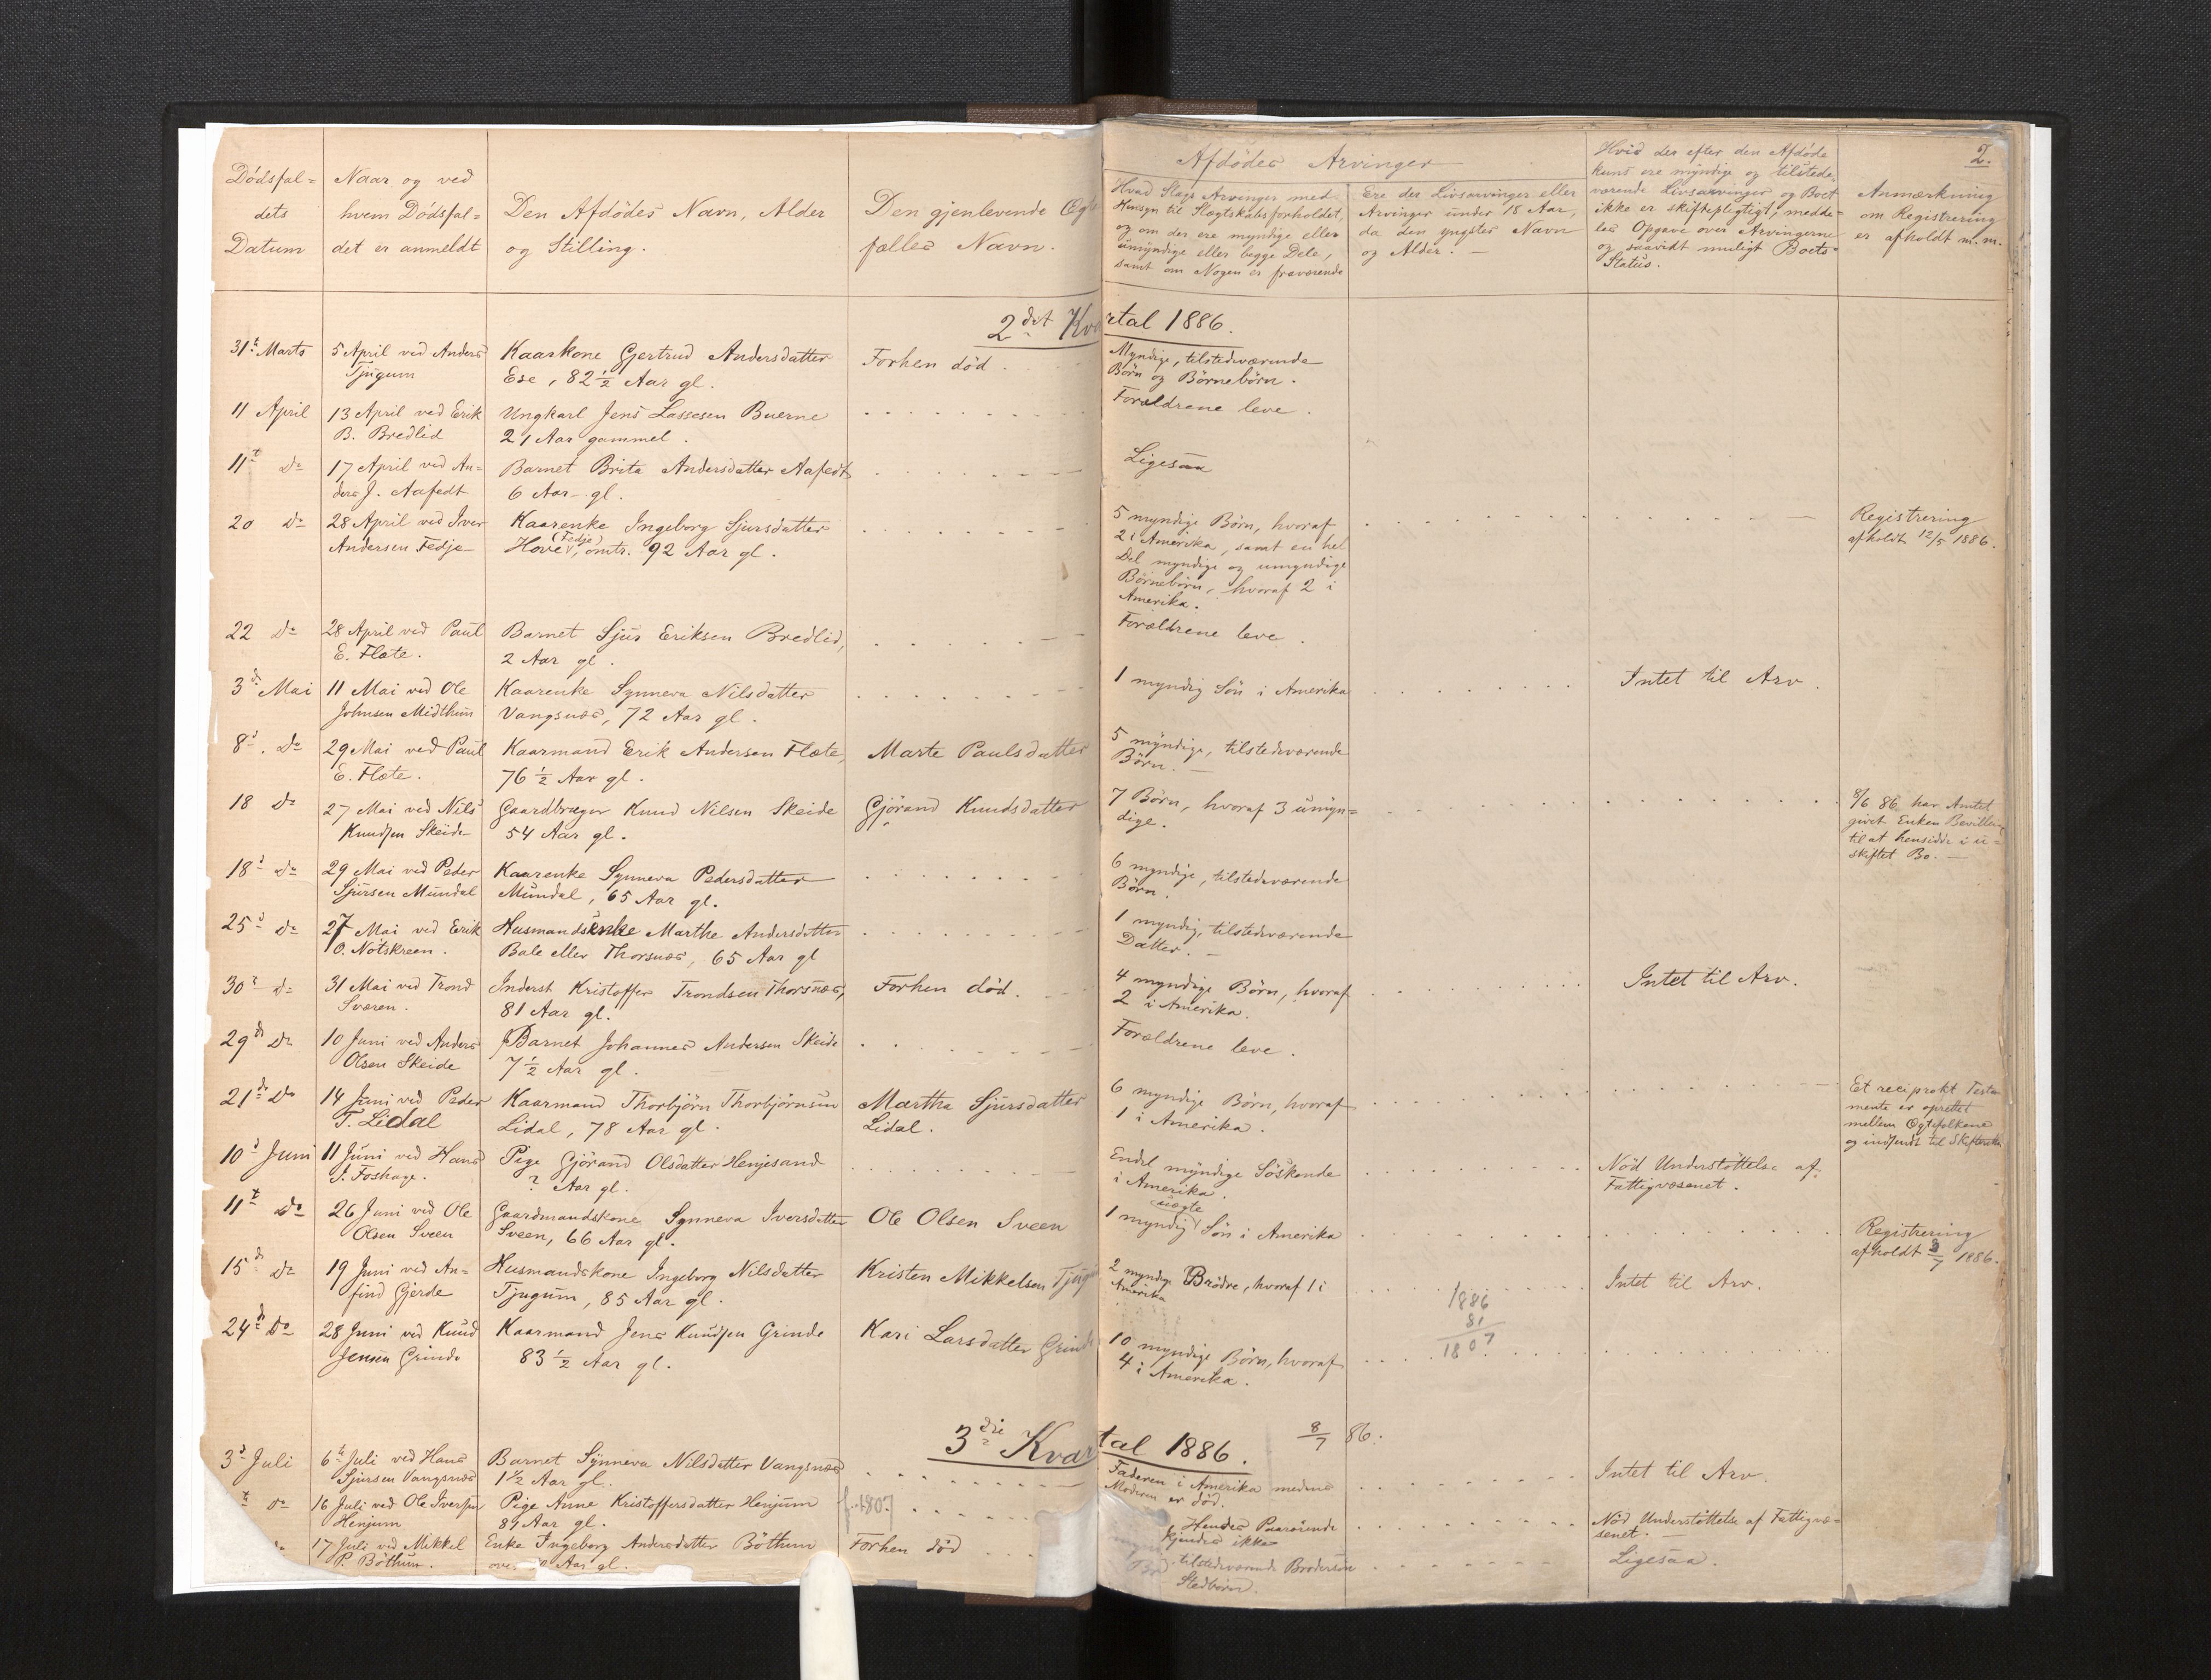 2.
Dödsfal=
dets
Datum
Naar og ved
hvem Dödsfal=
det er anmeldt
Den Afdödes Navn, Alder
og Stilling.
Den gjenlevende Ægte
fælles Navn.
Afdödes Arvinger
Hvad Slags Arvinger med
Hensyn til Slægtskabsforholdet,
og om der ere myndige eller
umyndige eller begge Dele,
samt om Nogen er fraværende
Ere der Livsarvinger eller
Arvinger under 18 Aar,
da den yngstes Navn
og Alder. —
Hvis der efter den Afdöde
kuns ere myndige og tilstede=
værende Livsarvinger og Boet
ikke er skiftepligtigt, medde=
les Opgave over Arvingerne
og saavidt muligt Boets
Status.
Anmærkning
om Registrering
er afholdt m.m.
2det Kvartal 1886.
31te Marts
5 April ved Anders
Tjugum
Kaarkone Gjertrud Andersdatter
Ese, 82 ½ Aar gl.
Forhen död.
Myndige, tilstedværende
Börn og Börnebörn.
11 April
13 April ved Erik
B. Bredlid
Ungkarl Jens Lassesen Buerne
21 Aar gammel.
Forældrene leve.
11te Do
17 April ved An=
ders J. Aafedt
Barnet Brita Andersdatter Aafedt
6 Aar gl.
Ligesaa
20 Do
28 April ved Iver
Andersen Fedje
Kaarenke Ingeborg Sjursdatter
Hove (Fedje), omtr. 92 Aar gl.
5 myndige Börn, hvoraf
2 i Amerika, samt en hel
Del myndige og umyndige
Börnebörn, hvoraf 2 i
Amerika.
Registrering
afholdt 12/5 1886.
22 Do
28 April ved Paul
E. Flæte.
Barnet Sjur Eriksen Bredlid,
2 Aar gl.
Forældrene leve.
3die Mai
11 Mai ved Ole
Johnsen Midthun
Kaarenke Synneva Nilsdatter
Vangsnæs, 72 Aar gl.
1 myndig Sön i Amerika
Intet til Arv.
8de Do
29 Mai ved Paul
E. Flæte.
Kaarmand Erik Andersen Flæte,
76 ½ Aar gl.
Marte Paulsdatter
5 myndige, tilstedeværende
Börn. —
18 Do
27 Mai ved Nils
Knudsen Skeide
Gaardbruger Knud Nilsen Skeide
54 Aar gl.
Gjörand Knudsdatter
7 Börn, hvoraf 3 umyn=
dige.
8/6 86 har Amtet
givet Enken Bevilling
til at hensidde i u=
skiftet Bo. —
18de Do
29 Mai ved Peder
Sjursen Mundal
Kaarenke Synneva Pedersdatter
Mundal, 65 Aar gl.
6 myndige, tilstedeværende
Börn.
25de Do
27 Mai ved Erik
O. Nötskreen.
Husmandsenke Marthe Andersdatter
Bale eller Thorsnæs, 65 Aar gl
1 myndig, tilstedeværende
Datter. —
30te Do
31 Mai ved Trond
Sværen.
Inderst Kristoffer Trondsen Thorsnæs,
81 Aar gl.
Forhen död.
4 myndige Börn, hvoraf
2 i Amerika.
Intet til Arv.
29de Do
10 Juni ved Anders
Olsen Skeide
Barnet Johannes Andersen Skeide
7 ½ Aar gl.
Forældrene leve.
21de Do
14 Juni ved Peder
T. Lidal
Kaarmand Thorbjörn Thorbjörnsen
Lidal, 78 Aar gl.
Martha Sjursdatter
Lidal.
6 myndige Börn, hvoraf
1 i Amerika.
Et reciprokt Testa
mente er oprettet
mellem Ægtefolkene
og indsendt til Skifteretten
10de Juni
11 Juni ved Hans
J. Foshage.
Pige Gjörand Olsdatter Henjesand
? Aar gl.
Endel myndige Söskende
i Amerika.
Nöd Understöttelse af
Fattigvæsenet.
11te Do
26 Juni ved Ole
Olsen Sveen
Gaardmandskone Synneva Iversdatter
Sveen, 66 Aar gl.
Ole Olsen Sveen
1 myndig uægte Sön i Amerika
Registrering
afholdt 3/7 1886.
15de Do
19 Juni ved An=
find Gjerde
Husmandskone Ingeborg Nilsdatter
Tjugum, 85 Aar gl.
Kristen Mikkelsen Tjugum
2 myndige Brödre, hvoraf 1 i
Amerika
Intet til Arv.
1886
81
1807
24de Do
28 Juni ved Knud
Jensen Grinde
Kaarmand Jens Knudsen Grinde
83 ½ Aar gl.
Kari Larsdatter Grinde
10 myndige Börn, hvoraf
4 i Amerika.
3die Kvartal 1886.
8/7 86.
3die Juli
6te Juli ved Hans
Sjursen Vangsnæs
Barnet Synneva Nilsdatter Vangsnæs
1 ½ Aar gl.
Faderen i Amerika medens
Moderen er död.
Intet til Arv.
te do
16 Juli ved Ole Iversen
Henjum
Pige Anne Kristoffersdatter Henjum
81 Aar gl.
f. 1807
Hendes Paarörende
kjendes ikke
Nöd Understöttelse af Fattigvæ=
senet. —
17 Juli ved Mikkel
P. Böthun.
Enke Ingeborg Andersdatter Böthun
Aar gl.
Forhen död
tilstedeværende Brodersön
Stedbörn.
Ligesaa.